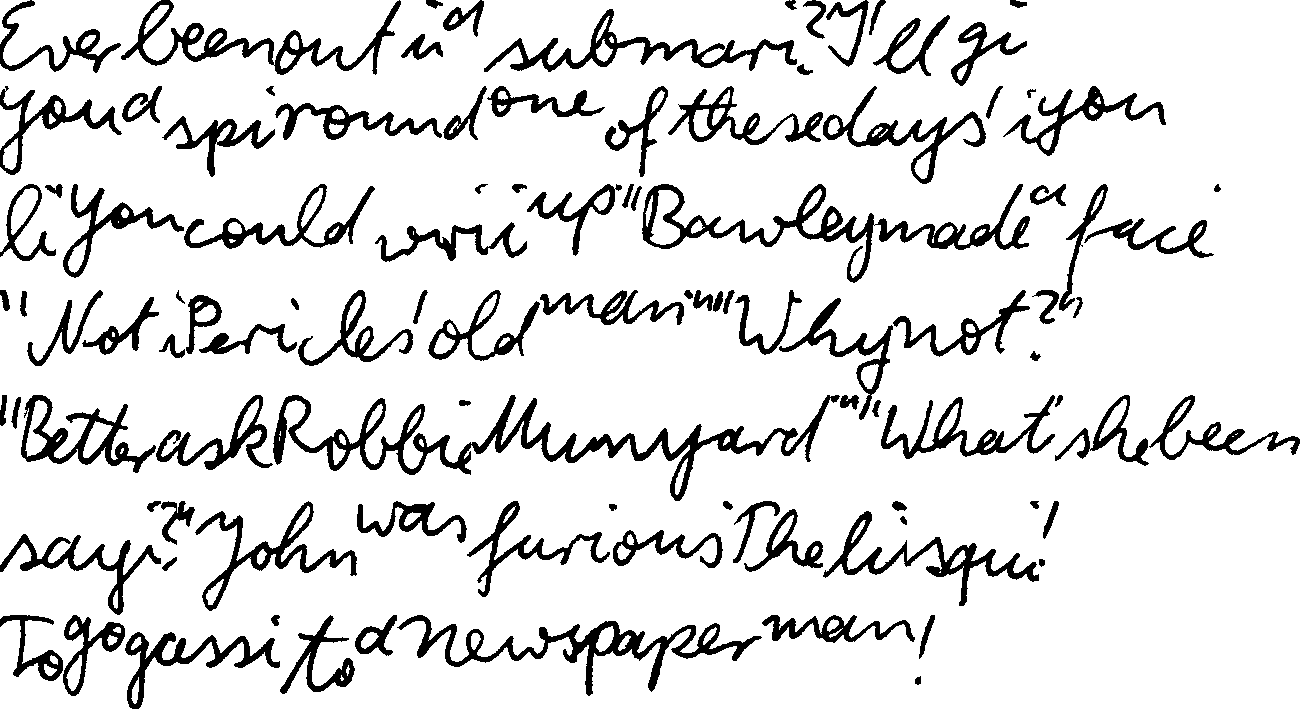 Ever been out i a submari? "I'll gi
you a spi round one of these days i you
li You could wrii up" Bawley made a face
"Not i Pericles' old man" "Why not?"
"Better ask Robbie Munyard" "What's he been
sayi?" John was furious The li squi!
To go gassi to a newspaper man!